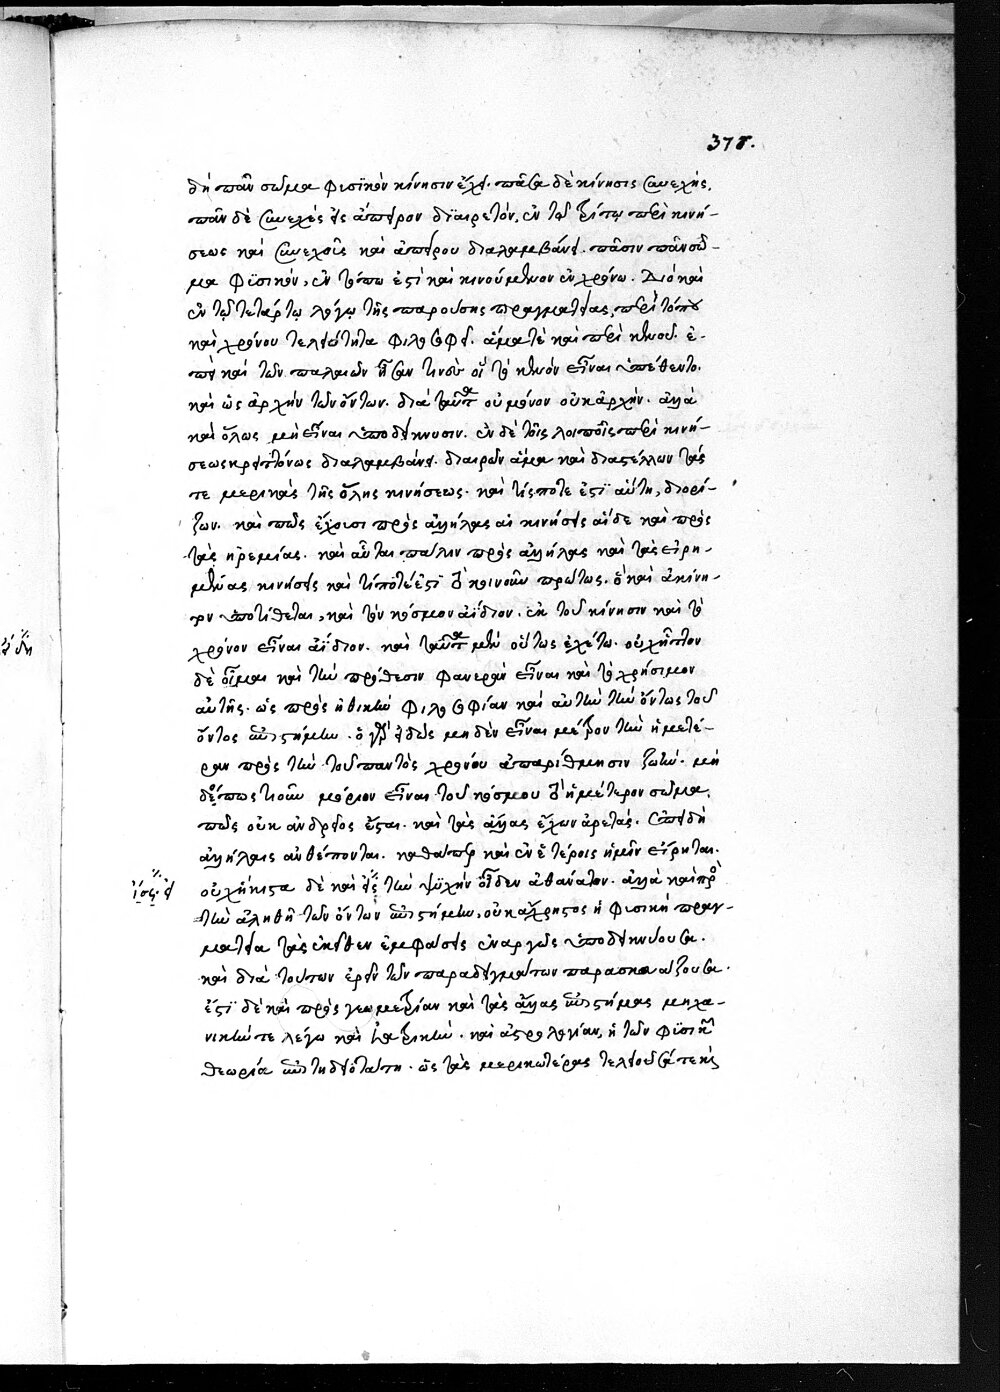 375.
δὴ πᾶν σῶμα φυσικὸν κίνησιν ἔχει. πᾶσα δὲ κίνησις συνεχής.
πᾶν δὲ συνεχὲς εἰς ἄπειρον διαιρετόν. ἐν τῷ τρίτῳ περὶ κινή-
σεως καὶ συνεχοῦς καὶ ἀπείρου διαλαμβάνει. πᾶσιν πᾶν σῶ-
μα φυσικὸν, ἐν τόπῳ ἐστὶ καὶ κινούμενον ἐν χρόνῳ. Διὸ καὶ
ἐν τῷ τετάρτῳ λόγῳ τῆς παρούσης πραγματείας, περὶ τόπου
καὶ χρόνου τελεώτητα φιλοσοφεῖ. ἅμα τὲ καὶ περὶ κενοῦ. ἐ-
πεὶ καὶ τῶν παλαιῶν ἦσαν τινὲς οἳ τὸ κενὸν εἶναι ὑπέθεντο.
καὶ ὡς ἀρχὴν τῶν ὄντων. διὰ ταῦτα οὐ μόνον οὐκ ἀρχὴν. ἀλλὰ
καὶ ὅλως μὴ εἶναι ὑποδείκνυσιν. ἐν δὲ τοῖς λοιποῖς περὶ κινή-
σεως κρειττόνως διαλαμβάνει. διαιρῶν ἅμα καὶ διαστέλλων τάς
τε μερικὰς τῆς ὅλης κινήσεως. καὶ τίς ποτε ἐστὶ αὕτη, διορί-
ζων. καὶ πῶς ἔχουσι πρὸς ἀλλήλας αἱ κινήσεις αἵδε καὶ πρὸς
τὰς ἠρεμίας. καὶ αὗται πάλιν πρὸς ἀλλήλας καὶ τὰς εἰρη-
μένας κινήσεις καὶ τί ποτέ ἐστι τὸ κινοῦν πρώτως. ὃ καὶ ἀκίνη-
τον ὑποτίθεται, καὶ τὸν κόσμον ἀΐδιον. ἐκ τοῦ κίνησιν καὶ τὸ
χρόνον εἶναι ἀΐδιον. καὶ ταῦτα μὲν οὕτως ἐχέτω. οὐχ ἧττον
δὲ οἶμαι καὶ τὴν πρόθεσιν φανερὰν εἶναι καὶ τὸ χρήσιμον
αὐτῆς. ὡς πρὸς ἠθικὴν φιλοσοφίαν καὶ αὐτὴν τὴν ὄντως τοῦ
ὄντος ἐπιστήμην. ὁ γὰρ εἰδὼς μηδὲν εἶναι μέτρον τὴν ἡμετέ-
ραν πρὸς τὴν τοῦ παντὸς χρόνου ἀπαρίθμησιν ζωήν. μὴ
δὲ πως τι οὖν μόριον εἶναι τοῦ κόσμου τὸ ἡμέτερον σῶμα.
πῶς οὐκ ἀνδρεῖος ἔσται. καὶ τὰς ἄλλας ἔχων ἀρετάς. ἐπειδὴ
ἀλλήλαις ἀνθέπονται. καθάπερ καὶ ἐν ἑτέροις ἡμῖν εἴρηται.
οὐχ ἥκιστα δὲ καὶ εἰς τὴν ψυχὴν οἶδεν ἀθάνατον. ἀλλὰ καὶ πρὸς
τὴν ἀληθῆ τῶν ὄντων ἐπιστήμην, οὐκ ἄχρηστος ἡ φυσικὴ πραγ-
ματεία τὰς ἐκεῖθεν ἐμφάσεις ἐναργῶς ὑποδεικνύουσα.
καὶ διὰ τούτων ἐρεῖν τῶν παραδειγμάτων παρασκευάζουσα.
ἔτι δὲ καὶ πρὸς γεωμετρίαν καὶ τὰς ἄλλας ἐπιστήμας μηχα-
νικήν τε λέγω καὶ ἰατρικὴν. καὶ ἀστρολογίαν, ἡ τῶν φυσικῶν
θεωρία ἐπιτηδειότατη. ὡς τὰς μερικωτέρας τελειοῦσά τε καὶ